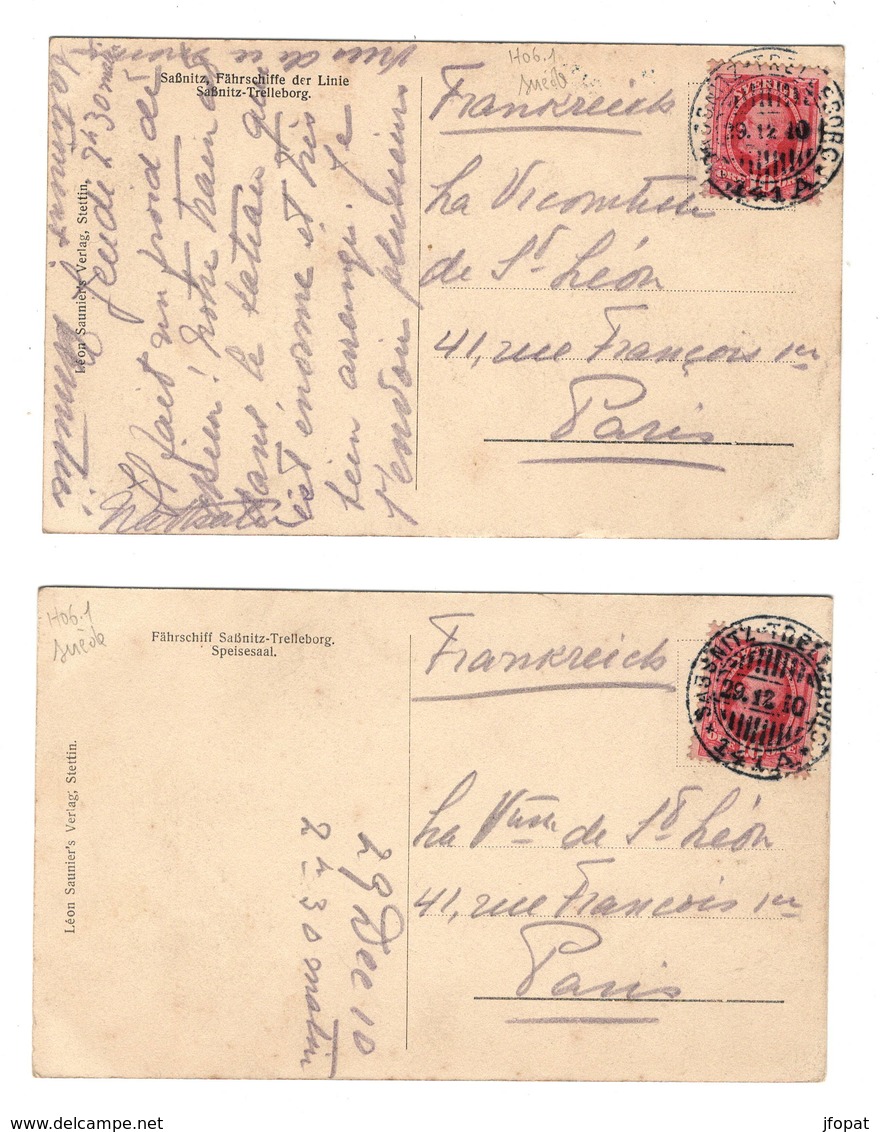 H06.1
Suède
Saßnitz, Fährschiffe der Linie
Saßnitz-Trelleborg.
Léon Saunier's Verlag, Stettin.
SASSNITZ-TRELLEBORG
29.12.10
141 A
Frankreich
La Vicomtesse
de St Léon
41, rue François 1er
Paris
2h 30 matin
Il fait un froid de
chien! notre train
dans le bateau que
est énorme et très
bien arrangé. Je
t'envoie plusieurs
H06.1
Suède
Fährschiff Saßnitz-Trelleborg.
Speisesaal.
Léon Saunier's Verlag, Stettin.
29 Dec 10
2h 30 matin
SASSNITZ-TRELLEBORG
29.12.10
141 A
Frankreich
La Vtesse de St Léon
41, rue François 1er
Paris
jfopat
www.delcampe.net